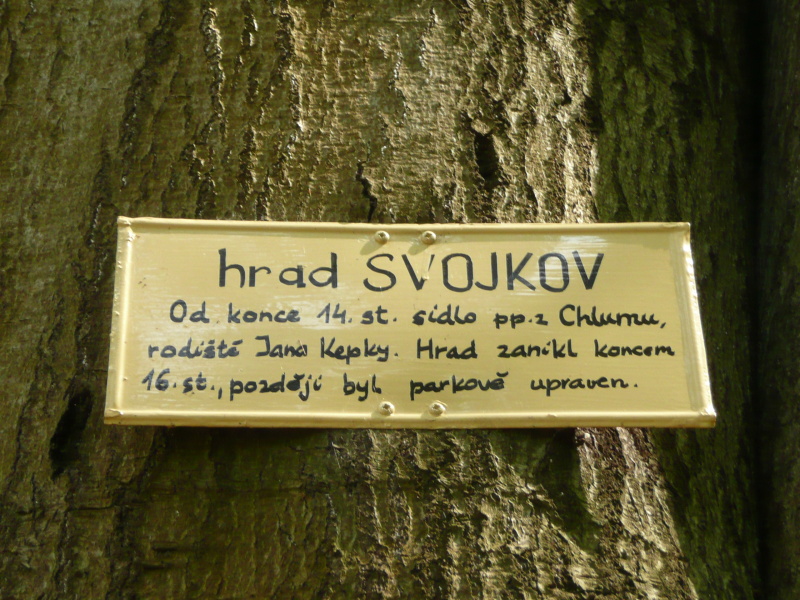 hrad SVOJKOV
Od konce 14. st. sídlo pp. z Chlumu,
rodiště Jana Kepky. Hrad zanikl koncem
16. st., později byl parkově upraven.